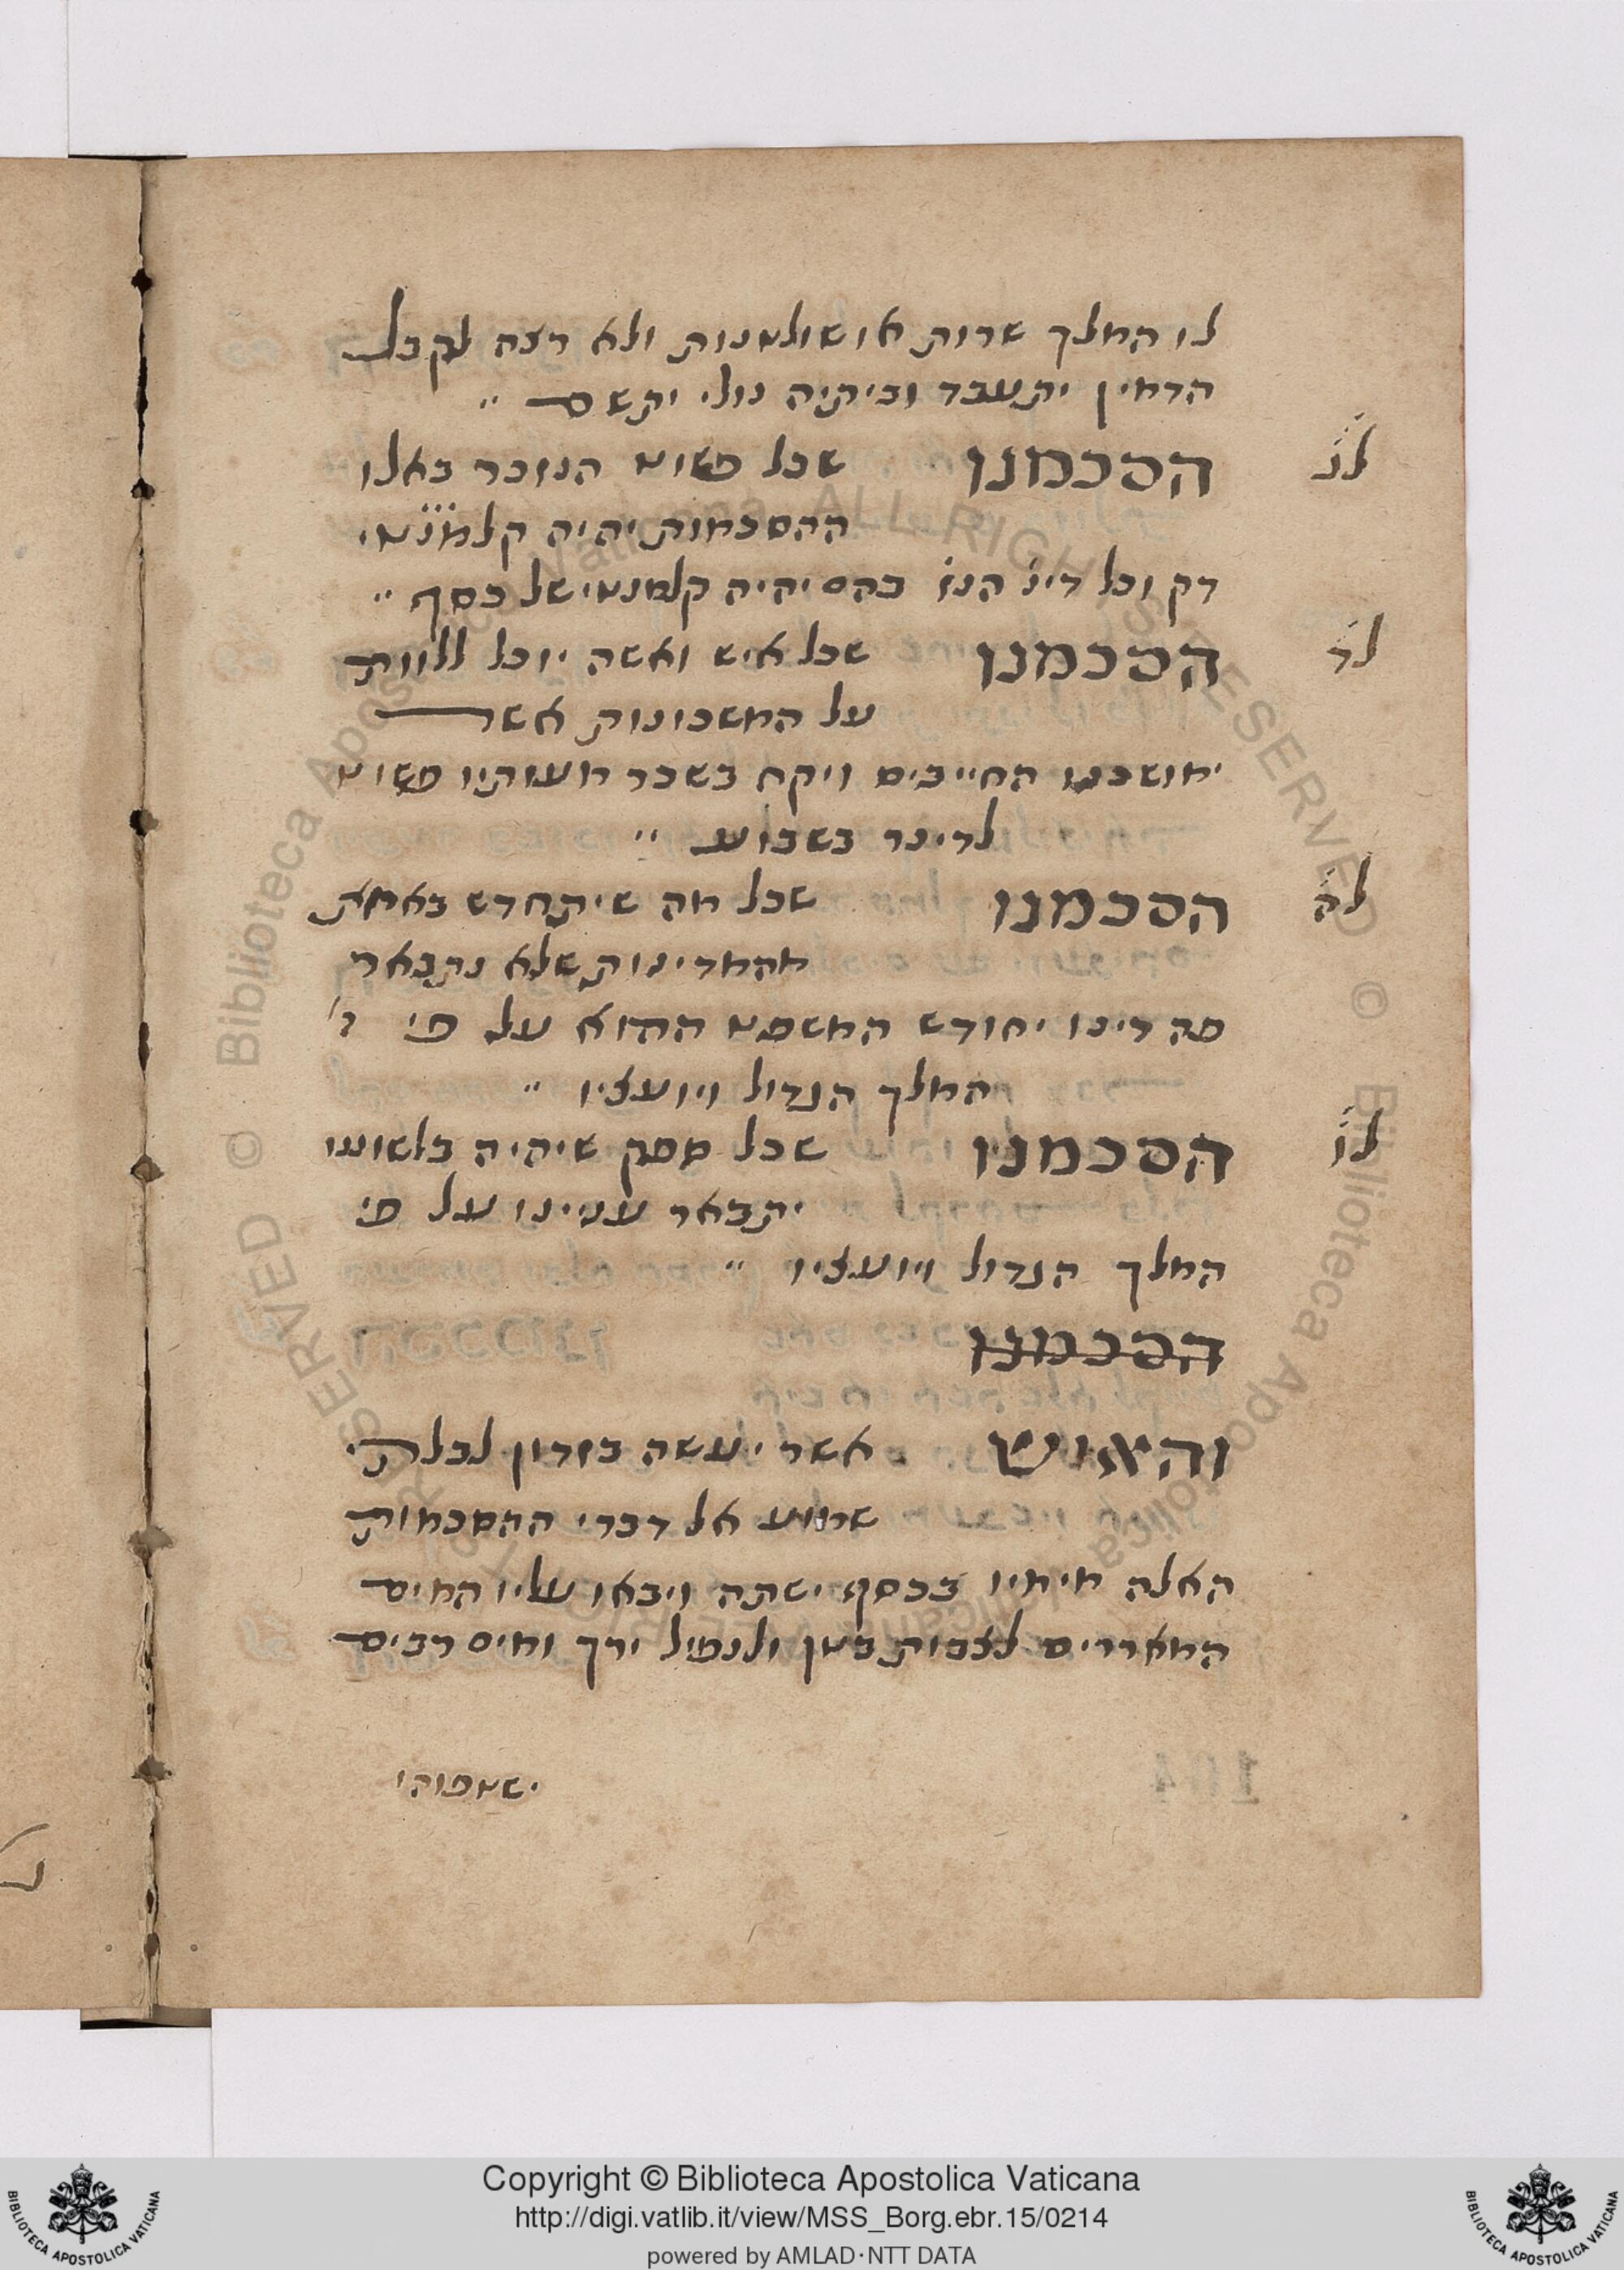 לו המלך שרות או שולטנות ולא רצה לקבל
הדמין יתעבד וביתיה נולי יתשם ״
לג הסכמנו שכל פשוט הנזכר באלו
ההסכמות יהיה קלמנטי
דק וכל דינ' הנז' בהם יהיה קלמנטי של כסף ״
לד הסכמנו שכל איש ואשה יוכל ללוות
על המשכונות אשר
ימושכנו החייבים ויקח בשכר מעותיו פשוט
לדינר בשבוע ״
לה הסכמנו שכל מה שיתחדש באחת
מהמדינות שלא נתבאר
פה דינו יחודש המשפט ההוא על פי
המלך הגדול ויועציו ״
לו הסכמנו שכל ספק שיהיה בלשוננו
יתבאר עניינו על פי
המלך הגדול ויועציו ״
הסכמנו
והאיש אשר יעשה בזדון לבלתי
שמוע אל דברי ההסכמות
האלה מימיו בכסף ישתה ויבאו עליו המים
המאררים לצבות בטן ולנפיל ירך ומים רבים
ישטפוהו
Copyright © Biblioteca Apostolica Vaticana
http://digi.vatlib.it/view/MSS_Borg.ebr.15/0214
powered by AMLAD·NTT DATA